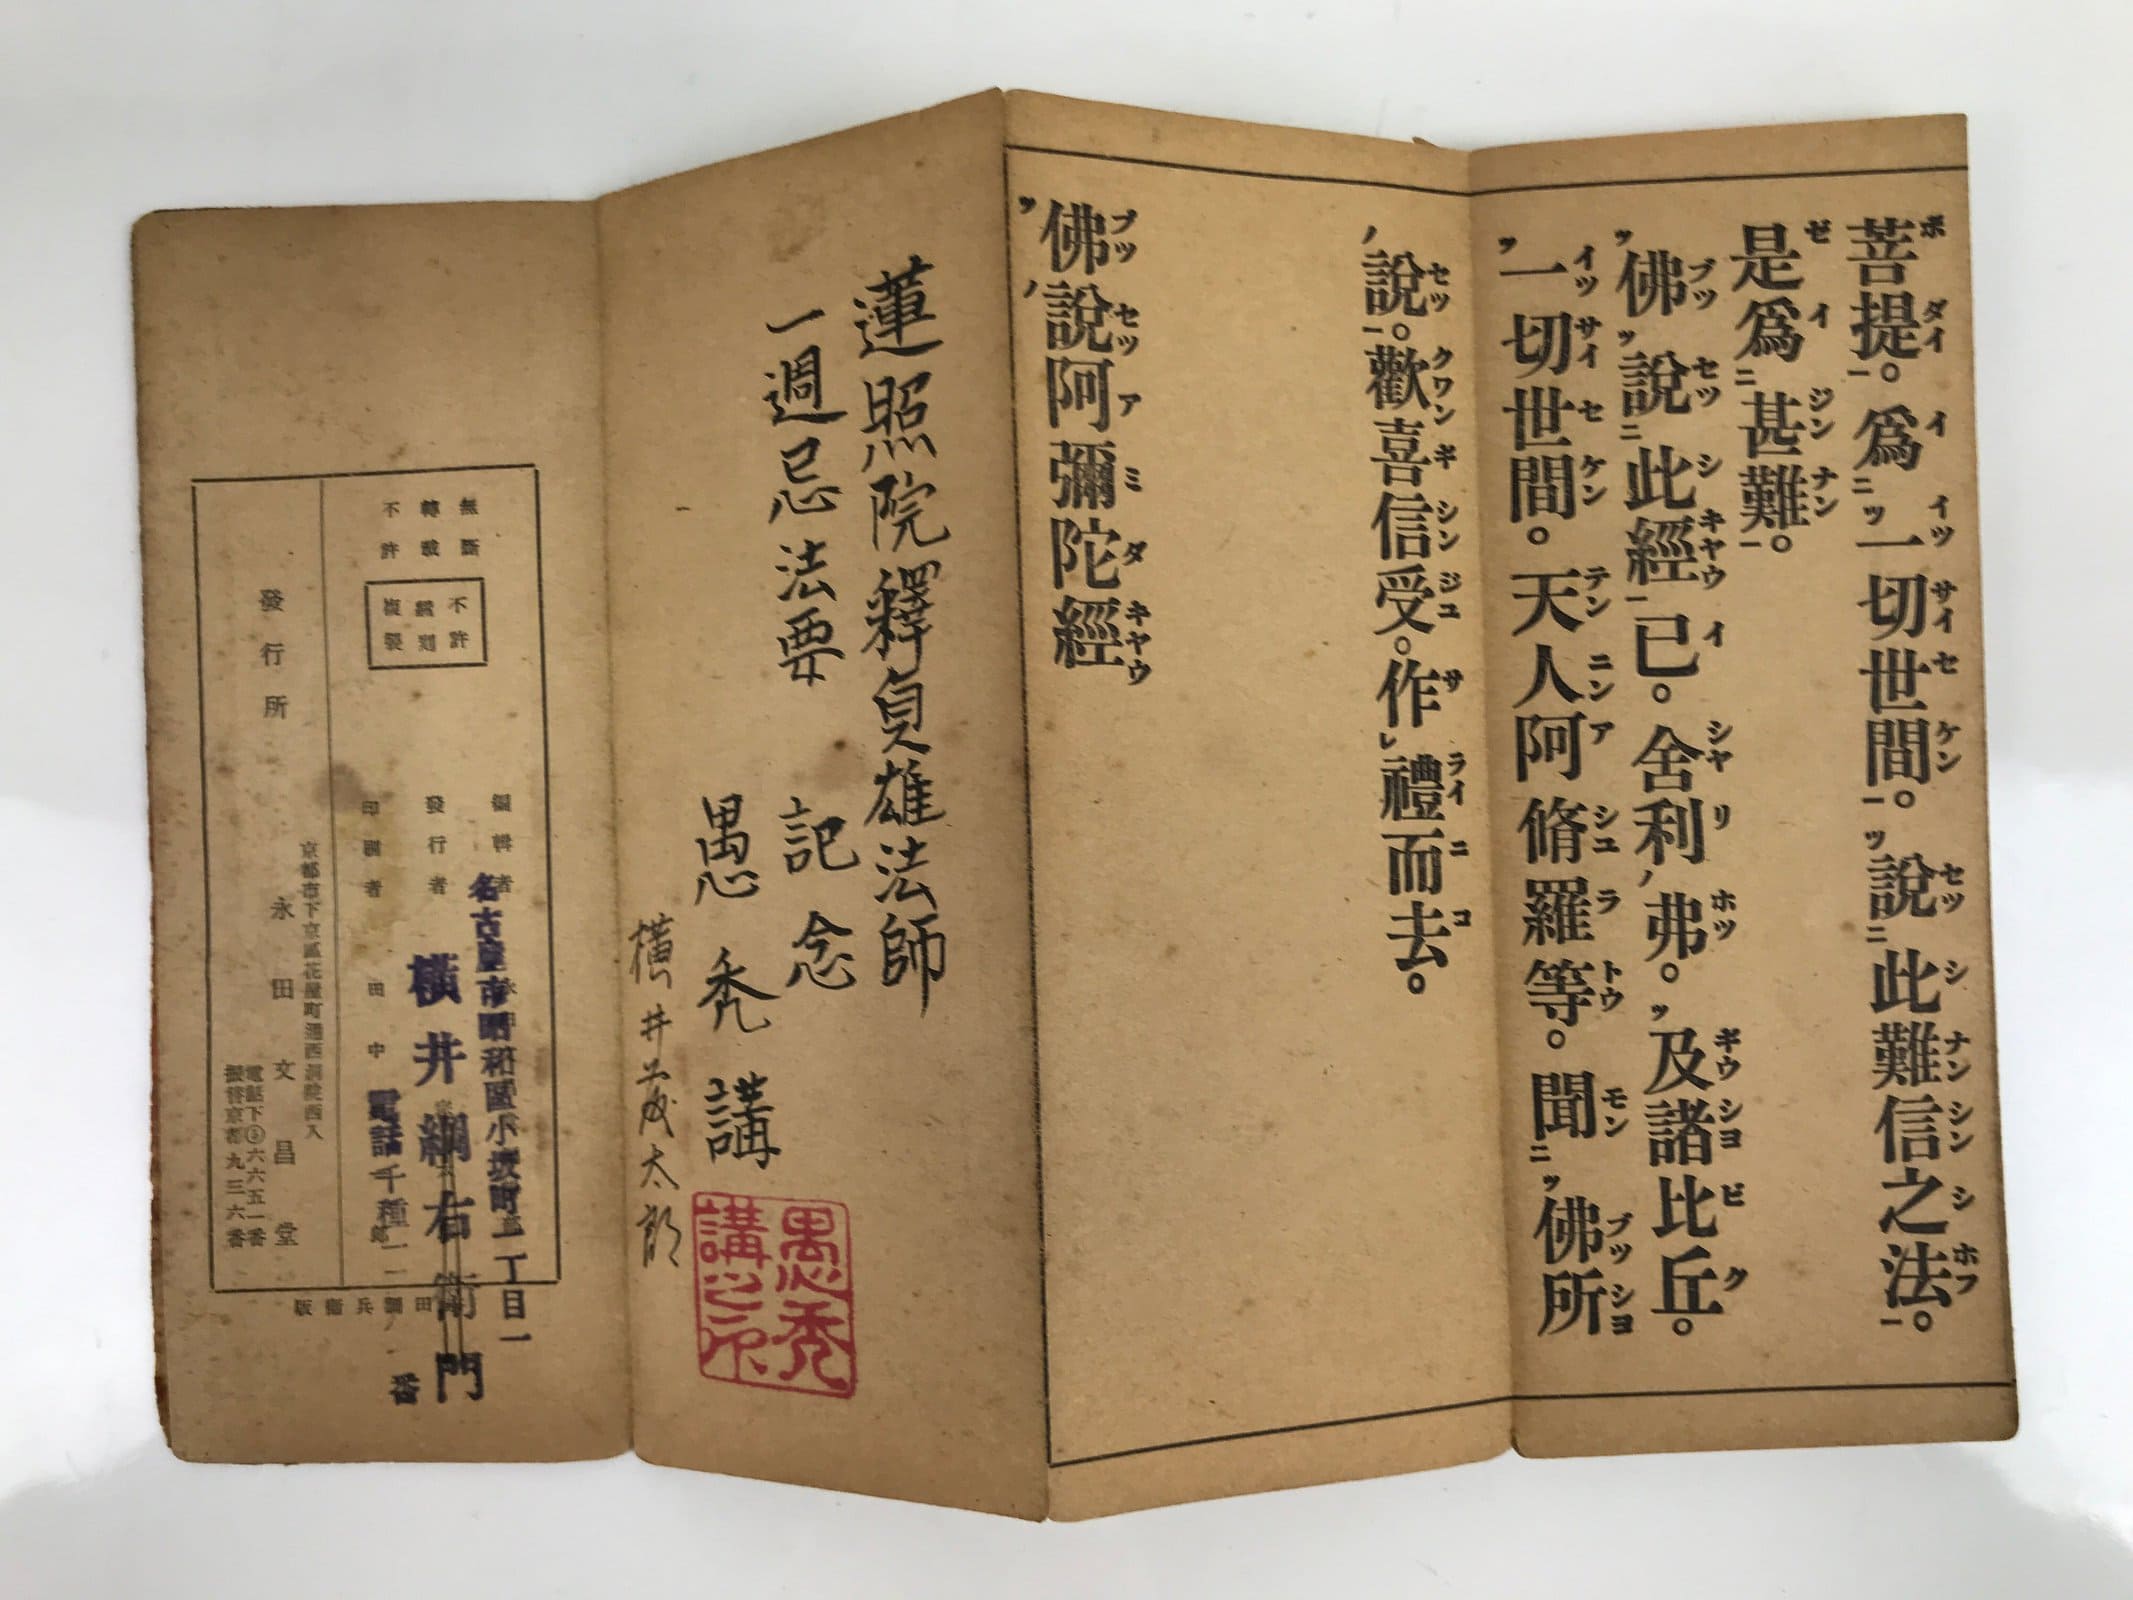 菩提。爲一切世間。說此難信之法。
是爲甚難。
佛說此經已。舍利弗。及諸比丘。
一切世間。天人阿脩羅等。聞佛所
說。歡喜信受。作禮而去。
佛說阿彌陀經
蓮照院釋貞雄法師
一週忌法要
記念
愚禿講
横井茂太郎
愚禿
講之印
無斷
轉載
不許
不許
飜刻
複製
編輯者
名古屋市昭和區小坂町二丁目一
發行者
横井綱右衛門
印刷者
田中
電話千種二一番
京都市下京區花屋町通西洞院西入
發行所
永田文昌堂
電話下⑤六六五一番
振替京都九三六番